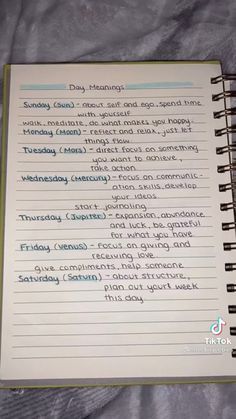 Day Meanings
Sunday (Sun) - about self and ego, spend time
with yourself
walk, meditate, do what makes you happy.
Monday (Moon) - reflect and relax, just let
things flow.
Tuesday (Mars) - direct focus on something
you want to achieve,
take action
Wednesday (Mercury) - Focus on communic-
ation skills, develop
your ideas.
start journaling
Thursday (Jupiter) - expansion, abundance
and luck, be grateful
for what you have
Friday (Venus) - Focus on giving and
receiving love.
give compliments, help someone
Saturday (Saturn) - about structure,
plan out your week
this day
TikTok